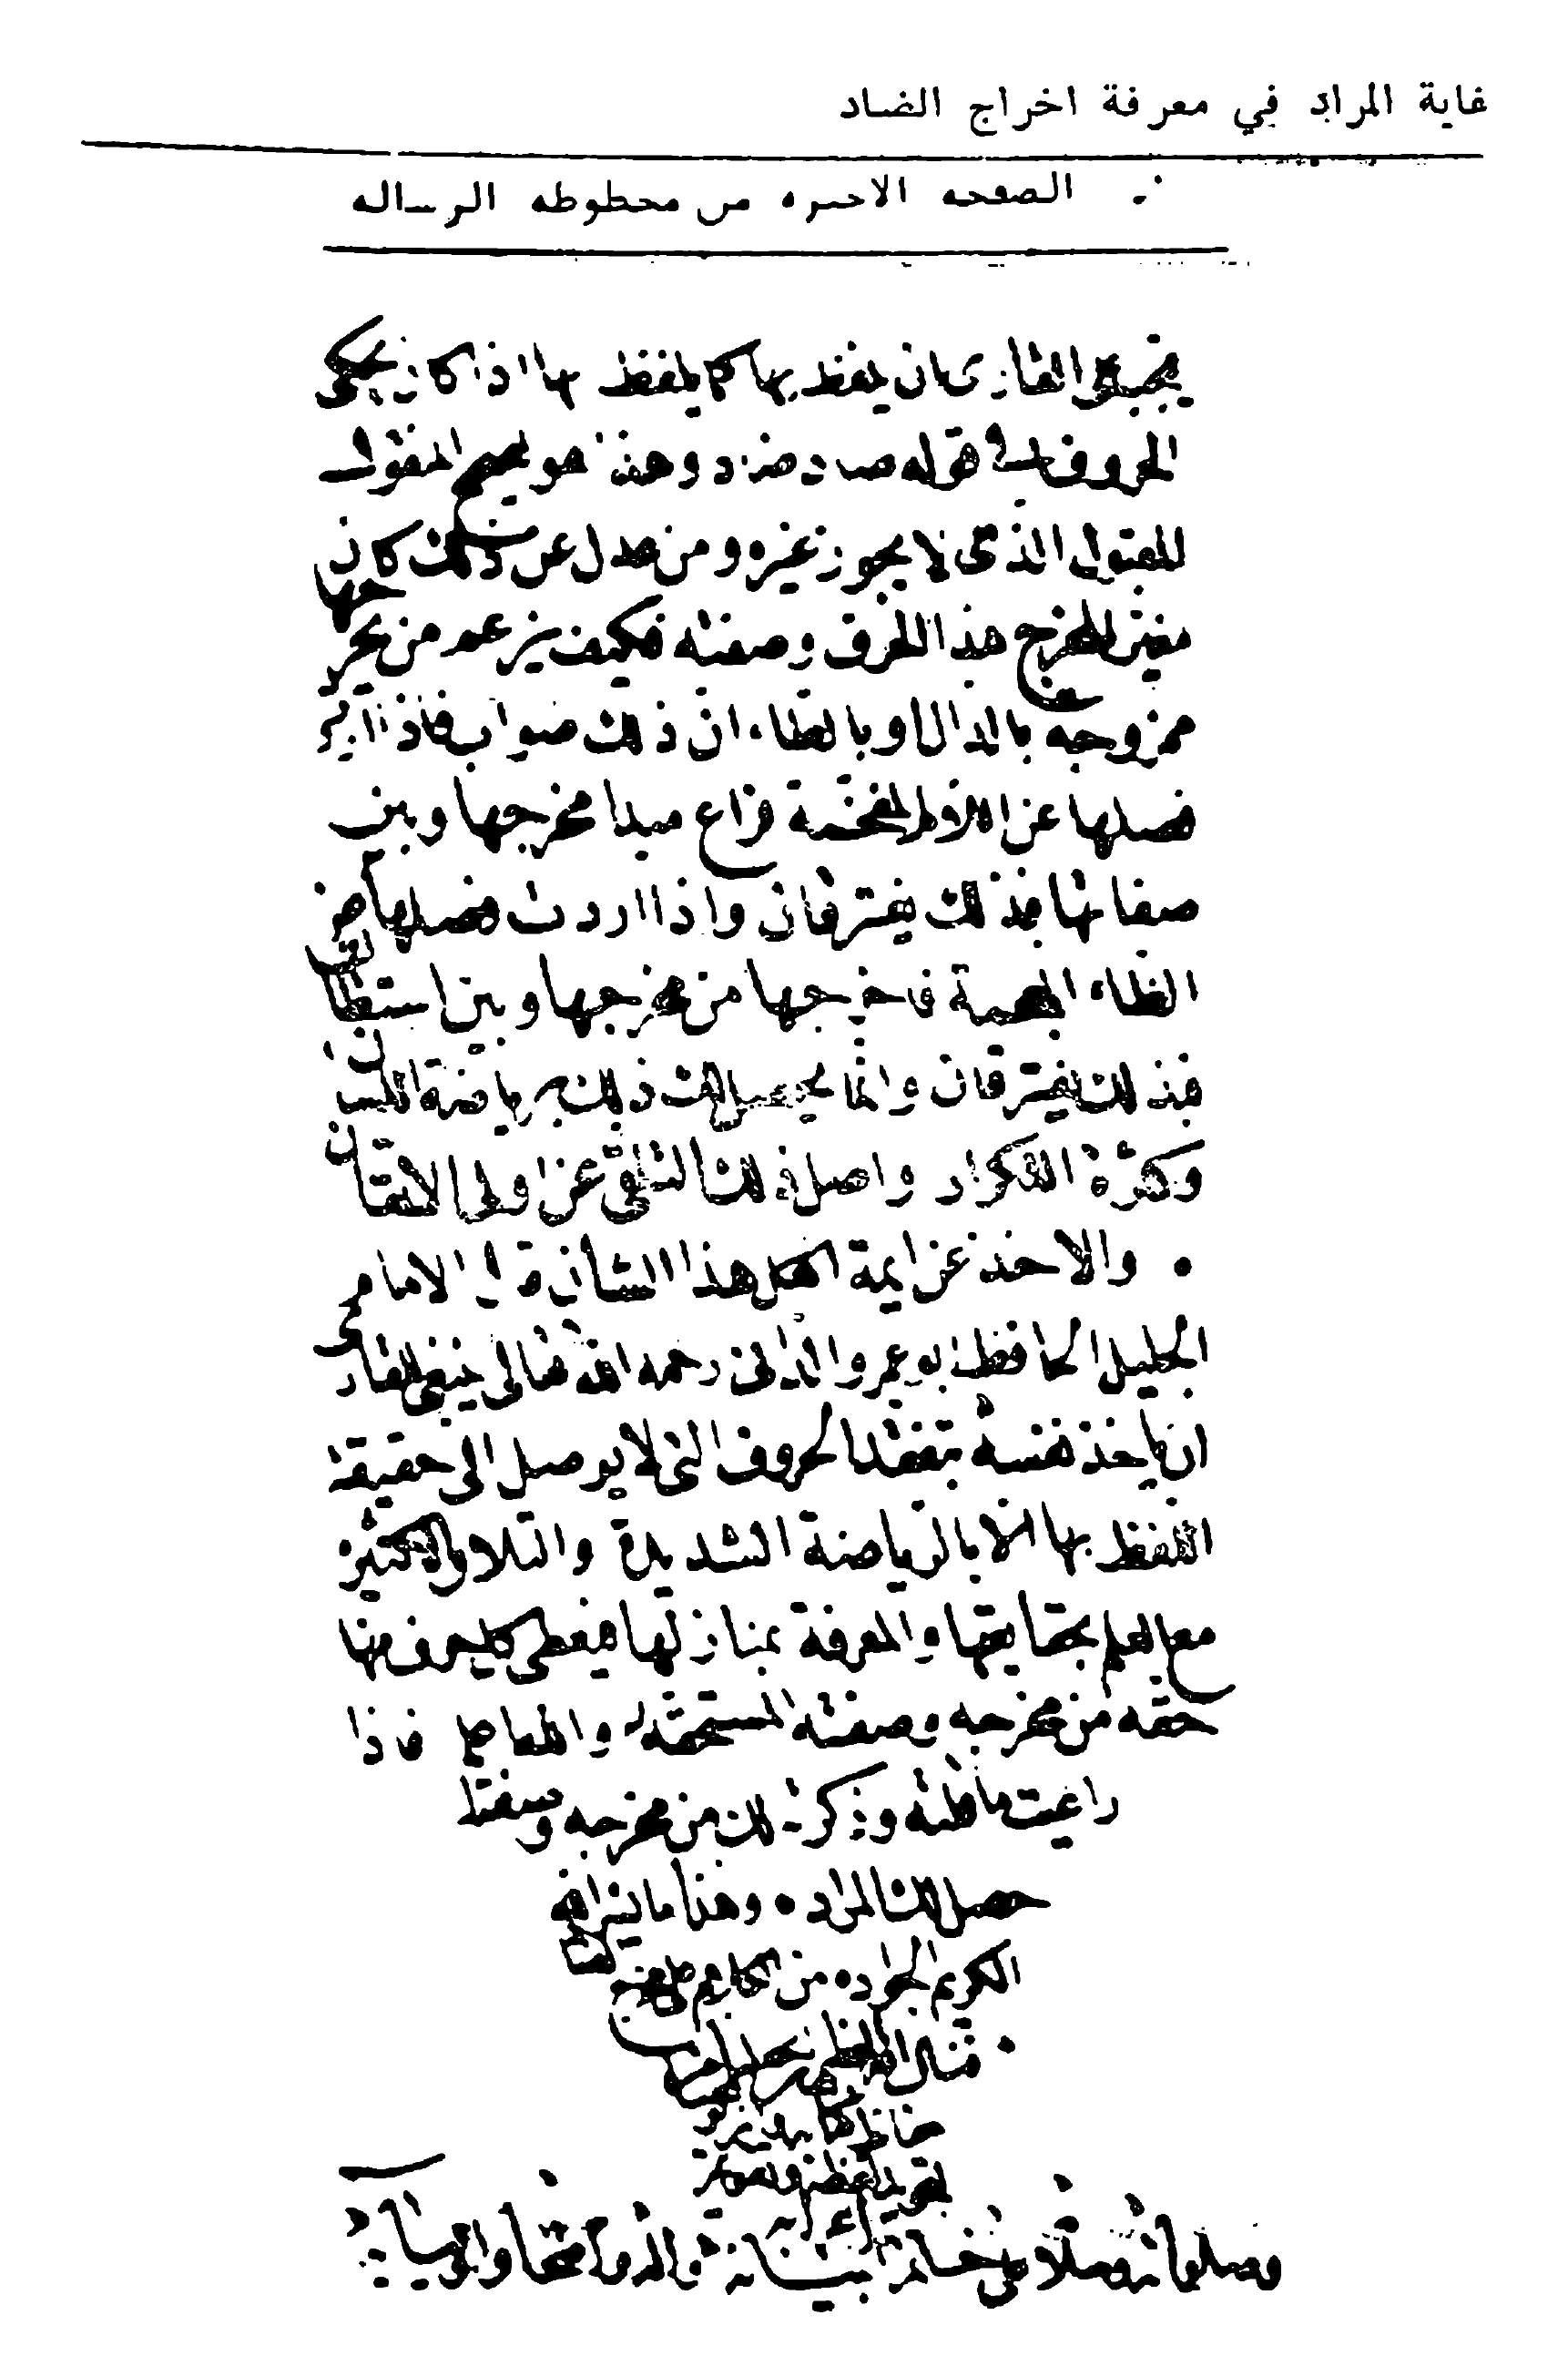 غاية المراد في معرفة اخراج الضاد
الصفحة الاخيرة من مخطوطة الرسالة
يجب على القارى ان يلفظ بها كما يلفظ بها اذا كان يحكى
الحروف في قوله صاد ضاد وهذا هو الصحيح المنقول
المقبول الذى لا يجوز غيره ومن عدل عن ذلك كان
مغيرا لمخرج هذا الحرف وصفته فكيف يزعم من يخرجها
ممزوجة بالدال او بالطاء ان ذلك صواب فاذا اريد
فصلها عن اللام المفخمة فراع مبدا مخرجها وبين
صفاتها فبذلك يفترقان واذا اردت فصلها عن
الظاء المعجمة فاخرجها من مخرجها وبين استطالتها
فبذلك يفترقان وانما يحصل لك ذلك برياضة اللسان
وكثرة التكرار واصل ذلك التلقى عن اولى الاتقان
والاخذ عن ايمة اهل هذا الشان قال الامام
الجليل الحافظ ابو عمرو الدانى رحمه الله تعالى ينبغى للقارى
ان ياخذ نفسه بتفقد الحروف التى لا يوصل الى حقيقة
اللفظ بها الا بالرياضة الشديدة والتلاوة الكثيرة
مع العلم بحقايقها والمعرفة بمنازلها فيعطى كل حرف منها
حقه من مخرجه وصفته المستحقة فاذا
راعيت ما قلته وذكرته لك من مخرجه وصفته
حصل لك المراد وهذا ما يسر الله
الكريم الجواد من